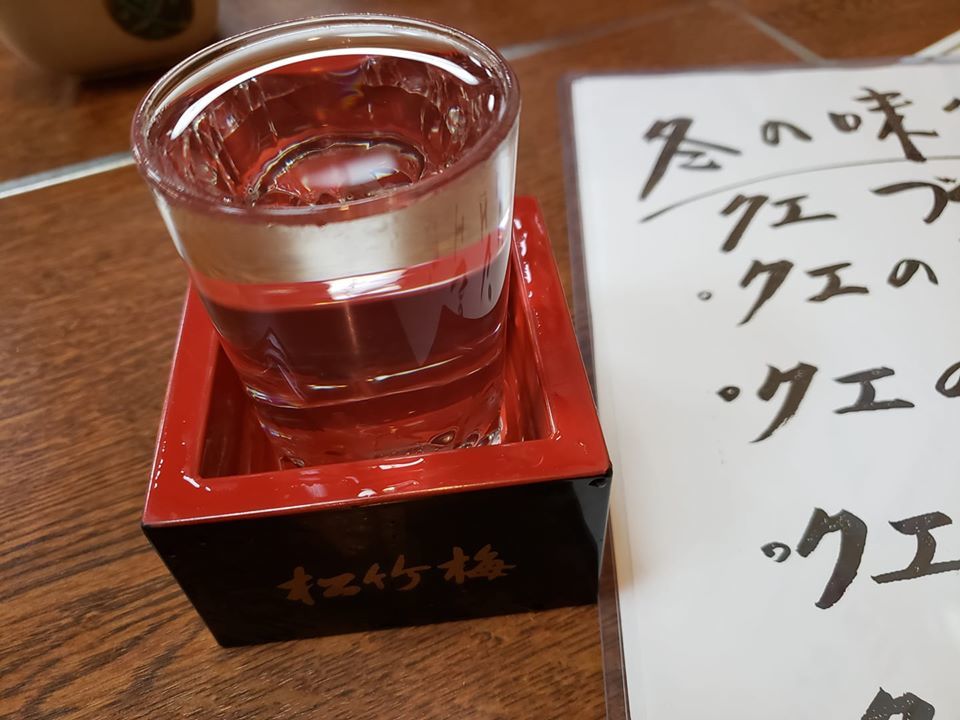 松竹梅
冬の味
クエ づ
クエの
クエの
クエ